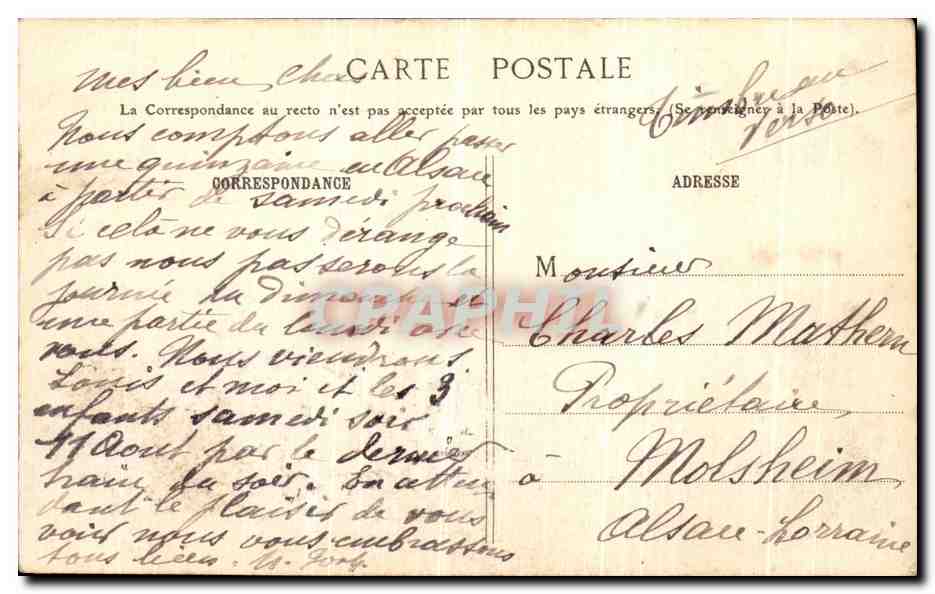 CARTE POSTALE
La Correspondance au recto n'est pas acceptée par tous les pays étrangers. (Se renseigner à la Poste).
Timbre au
verso
CORRESPONDANCE
mes bien chers
Nous comptons aller passer
une quinzaine en Alsace
à partir de samedi prochain
Si cela ne vous dérange
pas nous passerons la
journée du Dimanche et
une partie du lundi avec
vous. Nous viendrons
Louis et moi et les 3
enfants samedi soir
11 Août par le dernier
train du soir. En atten
dant le plaisir de vous
voir nous vous embrassons
tous bien.
ADRESSE
Monsieur
Charles Mathern
Propriétaire
à Molsheim
Alsace-Lorraine
CPAPHIL